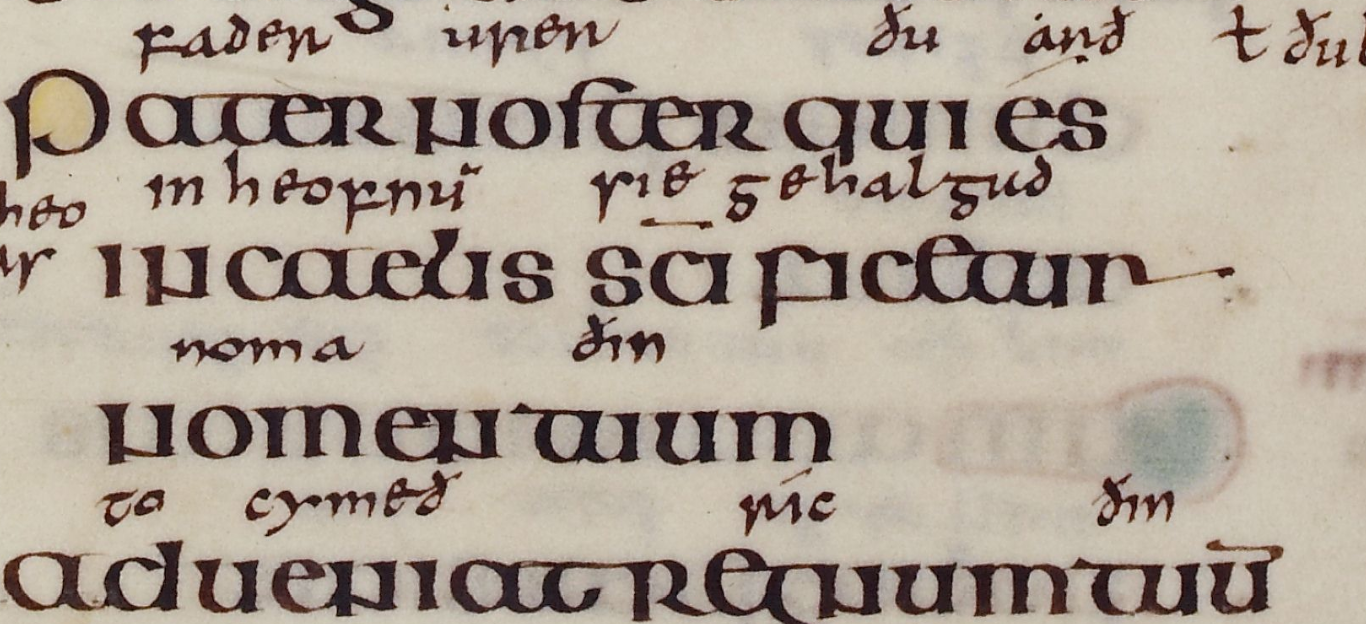 fader urer ðu arð ł ðu
Pater noster qui es
heo in heofnū sie gehalgud
in caelis sc̄ificetur
noma ðin
nomen tuum
to cymeð ric ðin
adueniat regnum tuū